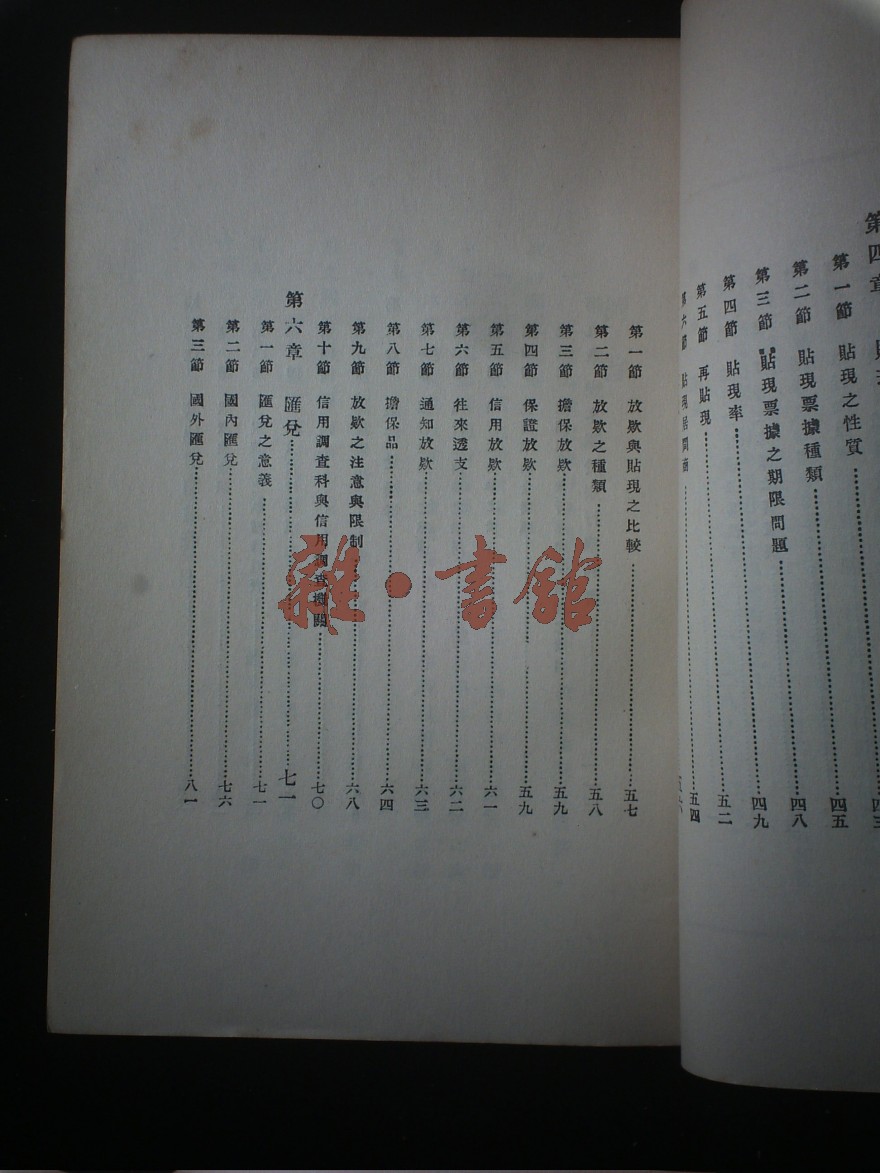 第四章 貼
四三
第一節 貼現之性質 四五
第二節 貼現票據種類 四八
第三節 貼現票據之期限問題 四九
第四節 貼現率 五二
第五節 再貼現 五四
第六節 貼現
第一節 放款與貼現之比較 五七
第二節 放款之種類 五八
第三節 擔保放款 五九
第四節 保證放款 五九
第五節 信用放款 六一
第六節 往來透支 六二
第七節 通知放款 六三
第八節 擔保品 六四
第九節 放款之注意與限制 六八
第十節 信用調查科與信用調查機關 七〇
第六章 匯兌 七一
第一節 匯兌之意義 七一
第二節 國內匯兌 七六
第三節 國外匯兌 八一
雜·書館